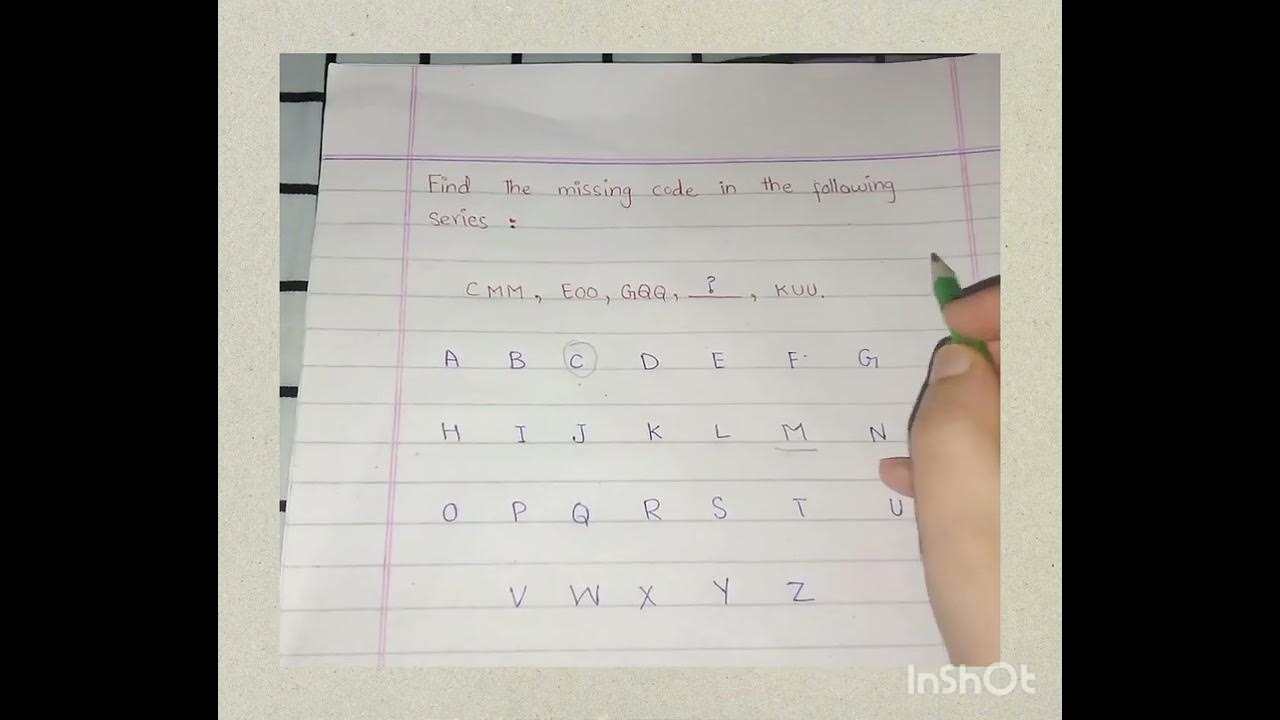 Find the missing code in the following
series :
CMM, EOO, GQQ, ?, KUU.
A B C D E F G
H I J K L M N
O P Q R S T U
V W X Y Z
InShOt